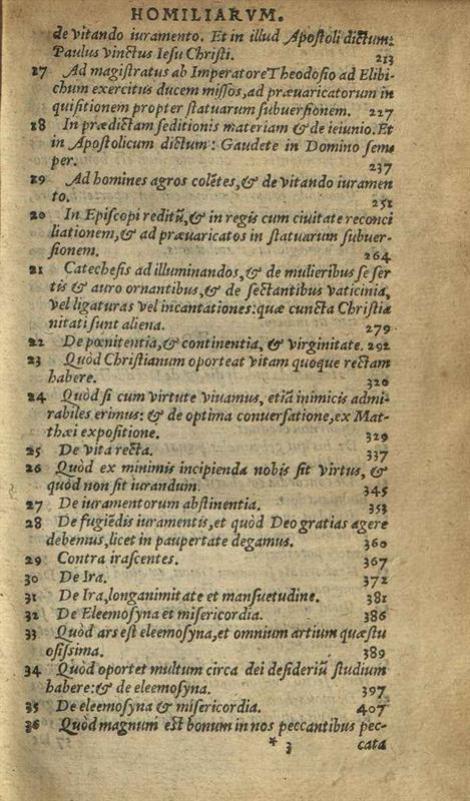 HOMILIARVM.
de vitando iuramento. Et in illud Apostoli dictum:
Paulus vinctus Iesu Christi. 213
17 Ad magistratus ab Imperatore Theodosio ad Elibi-
chum exercitus ducem missos, ad præuaricatorum in
quisitionem propter statuarum subuersionem. 227
18 In prædictam seditionis materiam & de ieiunio. Et
in Apostolicum dictum: Gaudete in Domino sem
per. 237
19 Ad homines agros colētes, & de vitando iuramen
to. 251
20 In Episcopi reditū, & in regis cum ciuitate reconci
liationem, & ad præuaricatos in statuarum subuer-
sionem. 264
21 Catechesis ad illuminandos, & de mulieribus se ser
tis & auro ornantibus, & de sectantibus vaticinia,
vel ligaturas vel incantationes: quæ cuncta Christia
nitati sunt aliena. 279
22 De pœnitentia, & continentia, & virginitate. 292
23 Quòd Christianum oporteat vitam quoque rectam
habere. 320
24 Quòd si cum virtute viuamus, etiā inimicis admi-
rabiles erimus: & de optima conuersatione, ex Mat-
thæi expositione. 329
25 De vita recta. 337
26 Quòd ex minimis incipienda nobis sit virtus, &
quòd non sit iurandum. 345
27 De iuramentorum abstinentia. 353
28 De fugiēdis iuramentis, et quòd Deo gratias agere
debemus, licet in paupertate degamus. 360
29 Contra irascentes. 367
30 De Ira. 372
31 De Ira, longanimitate et mansuetudine. 381
32 De Eleemosyna et misericordia. 386
33 Quòd ars est eleemosyna, et omnium artium quæstu
osissima. 389
34 Quòd oportet multum circa dei desideriū studium
habere: & de eleemosyna. 397
35 De eleemosyna & misericordia. 407
36 Quòd magnum est bonum in nos peccantibus pec-
* 3 cata